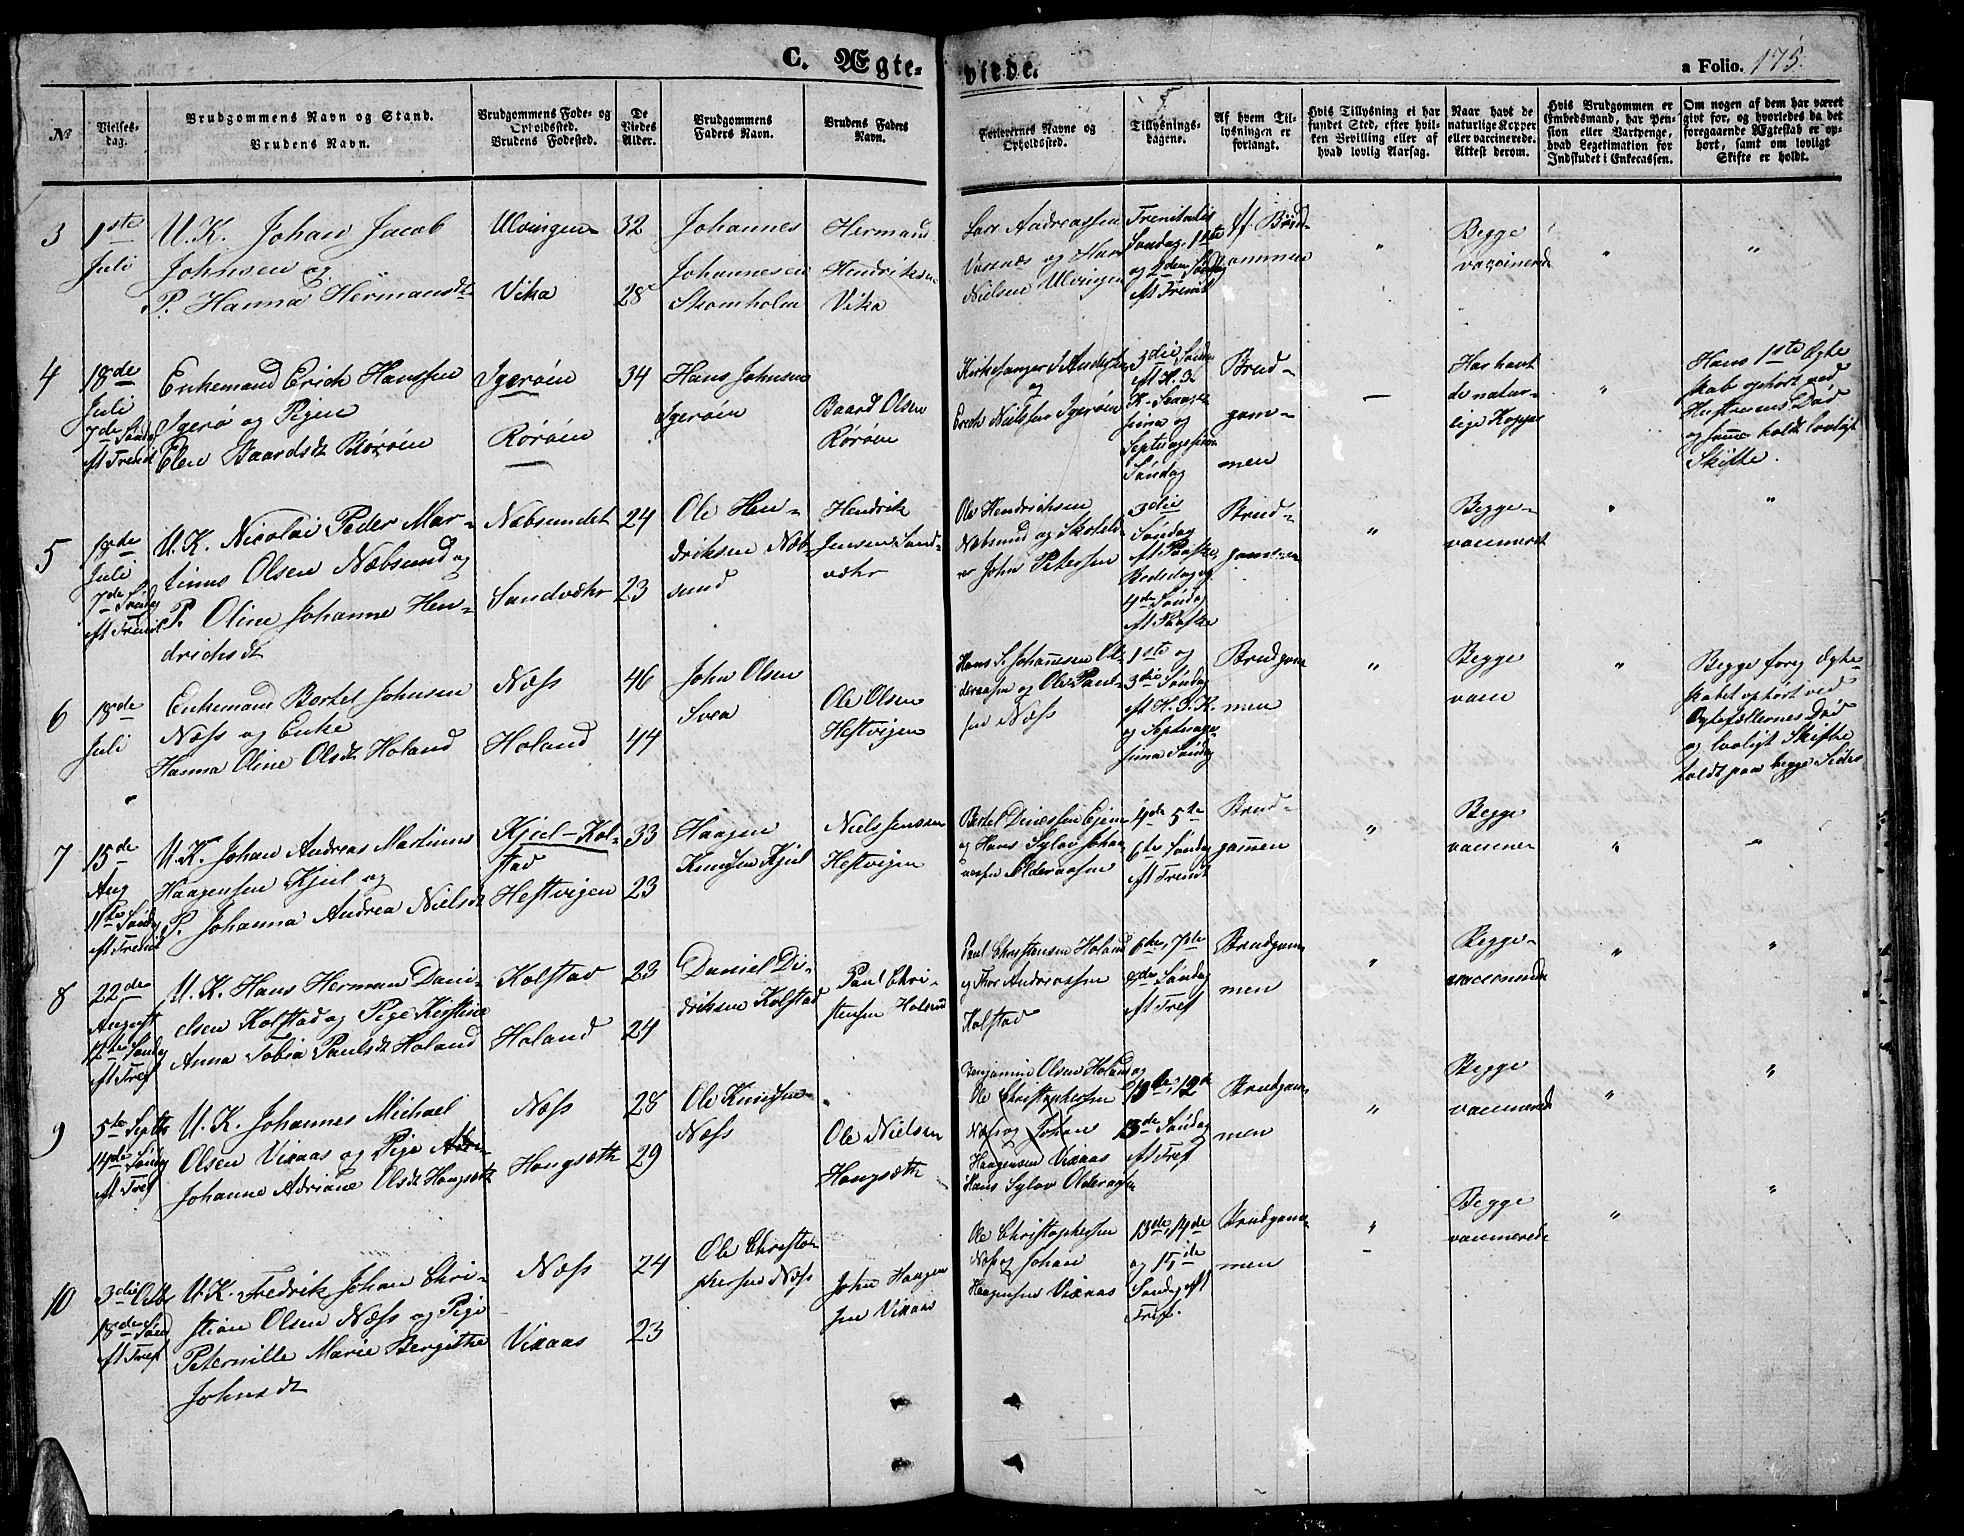 C. Ægte-
viede.
a Folio. 175.
№
Vielses-
dag.
Brudgommens Navn og Stand.
Brudens Navn.
Brudgommens Føde- og
Opholdssted.
Brudens Fødested.
De
Viedes
Alder.
Brudgommens
Faders Navn.
Brudens Faders
Navn.
Forlovernes Navne og
Opholdssted.
Tillysnings-
dagene.
Af hvem Til-
lysningen er
forlangt.
Hvis Tillysning ei har
fundet Sted, efter hvil-
ken Bevilling eller af
hvad lovlig Aarsag.
Naar havt de
naturlige Kopper
eller vaccinerede.
Attest derom.
Hvis Brudgommen er
Embedsmand, har Pen-
sion eller Vartpenge,
hvad Legetimation for
Indskudet i Enkecassen.
Om nogen af dem har været
givt før, og hvorledes da det
foregaaende Ægteskab er op-
hørt, samt om lovligt
Skifte er holdt.
3
1ste
Juli
U.K. Johan Jacob
Johnsen og
P. Hanna Hermansdt
Ulvingen
Vika
32
28
Johannes
Johannesen
Skomholm
Hermand
Hendriksen
Vika
Lars Andreassen
Vassnæs og Hans
Nielsen Ulvingen
Trenitatis
Søndag, 1ste
og 2den Søndag
eft Trenit
af Brud-
gommen
"
Begge
vaccinerede
"
"
4
18de
Juli
7de Søndag
eft Trenit
Enkemand Erich Hanssen
Igerø og Pigen
Elen Baardsdt Rørøen
Igerøen
Rørøen
34
Hans Johnsen
Igerøen
Baard Olsen
Rørøen
Kirkesanger
og
Erich Nielsen Igerøen
3die Søndag
eft H. 3
K.
sima og
Septuagesima
Søndag
Brud-
gom-
men
—
Har havt
de natur-
lige Kopper
"
Hans 1ste Ægte
skab ophørt ved
Hustruens Død
og samme holdt lovligt
Skifte.
5
18de
Juli
7de Søndag
eft Trenit
U.K. Nicolai Peder Mar-
tinus Olsen Næbsund og
P. Oline Johanne Hen-
drichsdt
Næbsundet
Sandvæhr
24
23
Ole Hen-
driksen Næb-
sund
Hendrik
Jensen Sand-
væhr
Ole Hendrichsen
Næbsund og Skolelæ-
rer John Petersen
3die
Søndag
eft Paaske,
Bededag og
4de Søndag
eft Paaske
Brud-
gommen
"
Begge
vaccineret
"
"
6
18de
Juli
"
Enkemand Bertel Johnsen
Næss og Enke
Hanna Oline Olsdt Holand
Næss
Holand
46
44
John Olsen
Svea
Ole Olsen
Hestvigen
Hans S. Johannesen Ol-
deraasen og Ole Paul-
sen Næss
1ste og
3die Søndag
eft H.3.K.
og Septuage-
sima Søndag
Brudgom
men
"
Begge
vacin
"
Begge forrig Ægte-
skabet ophørt ved
Ægtefællernes Død
og lovligt Skifte
holdt paa begge Sider
7
15de
Aug
11te Søndag
eft Trenit
U.K. Johan Andreas Martinus
Haagensen Kjul og
P. Johanna Andrea Nielsdt
Kjul-Kol-
stad
Hestvigen
33
23
Haagen
Knudsen Kjul
Niels Jenssen
Hestvigen
Bertel
og Hans Sylov Johan-
nesen Olderaasen
4de 5te
6te Søndag
eft Trenit
Brud-
gommen
"
Begge
vacciner
"
"
8
22de
August
12te Søndag
eft Tref
U.K. Hans Herman Dani-
elsen Kolstad og Pige Kirstine
Anna Tobia Paulsdt Holand
Kolstad
Holand
23
24
Daniel Di-
driksen Kolstad
Paul Chri-
stensen Holand
Paul Christensen Holand
og Thor Andreassen
Kolstad
6te, 7de
8de Søndag
eft Tref
Brudgom
men
"
Begge
vaccinerede
"
"
9
5te Septbr
14de Søndag
eft Tref
U.K. Johannes Michael
Olsen Vixaas og Pige
Johanne Adriane Olsdt Hongsæth
Næss
Hongsæth
28
29
Ole Knudsen
Næss
Ole Nielsen
Hongsæth
Benjamin Olsen Holand og
Ole Christophersen
Næss og Johan
Haagensen Vixaas
Hans Sylov
12
13de Søndag
eft Tref
Brudgom-
men
"
Begge
vaccinerede
"
"
10
3die Octbr
18de Sønd
eft Tref
U.K. Fredrik Johan Chri-
stian Olsen Næss og Pige
Peternille Marie Bergithe
Johnsdt
Næss
Vixaas
24
23
Ole Christo-
phersen Næss
John Haagen
sen Vixaas
Ole Christophersen
Næss og Johan
Haagensen Vixaas
13de, 14de
og 15de
Søndag eft
Tref.
Brudgom-
men
"
Begge
vaccinerede
"
"